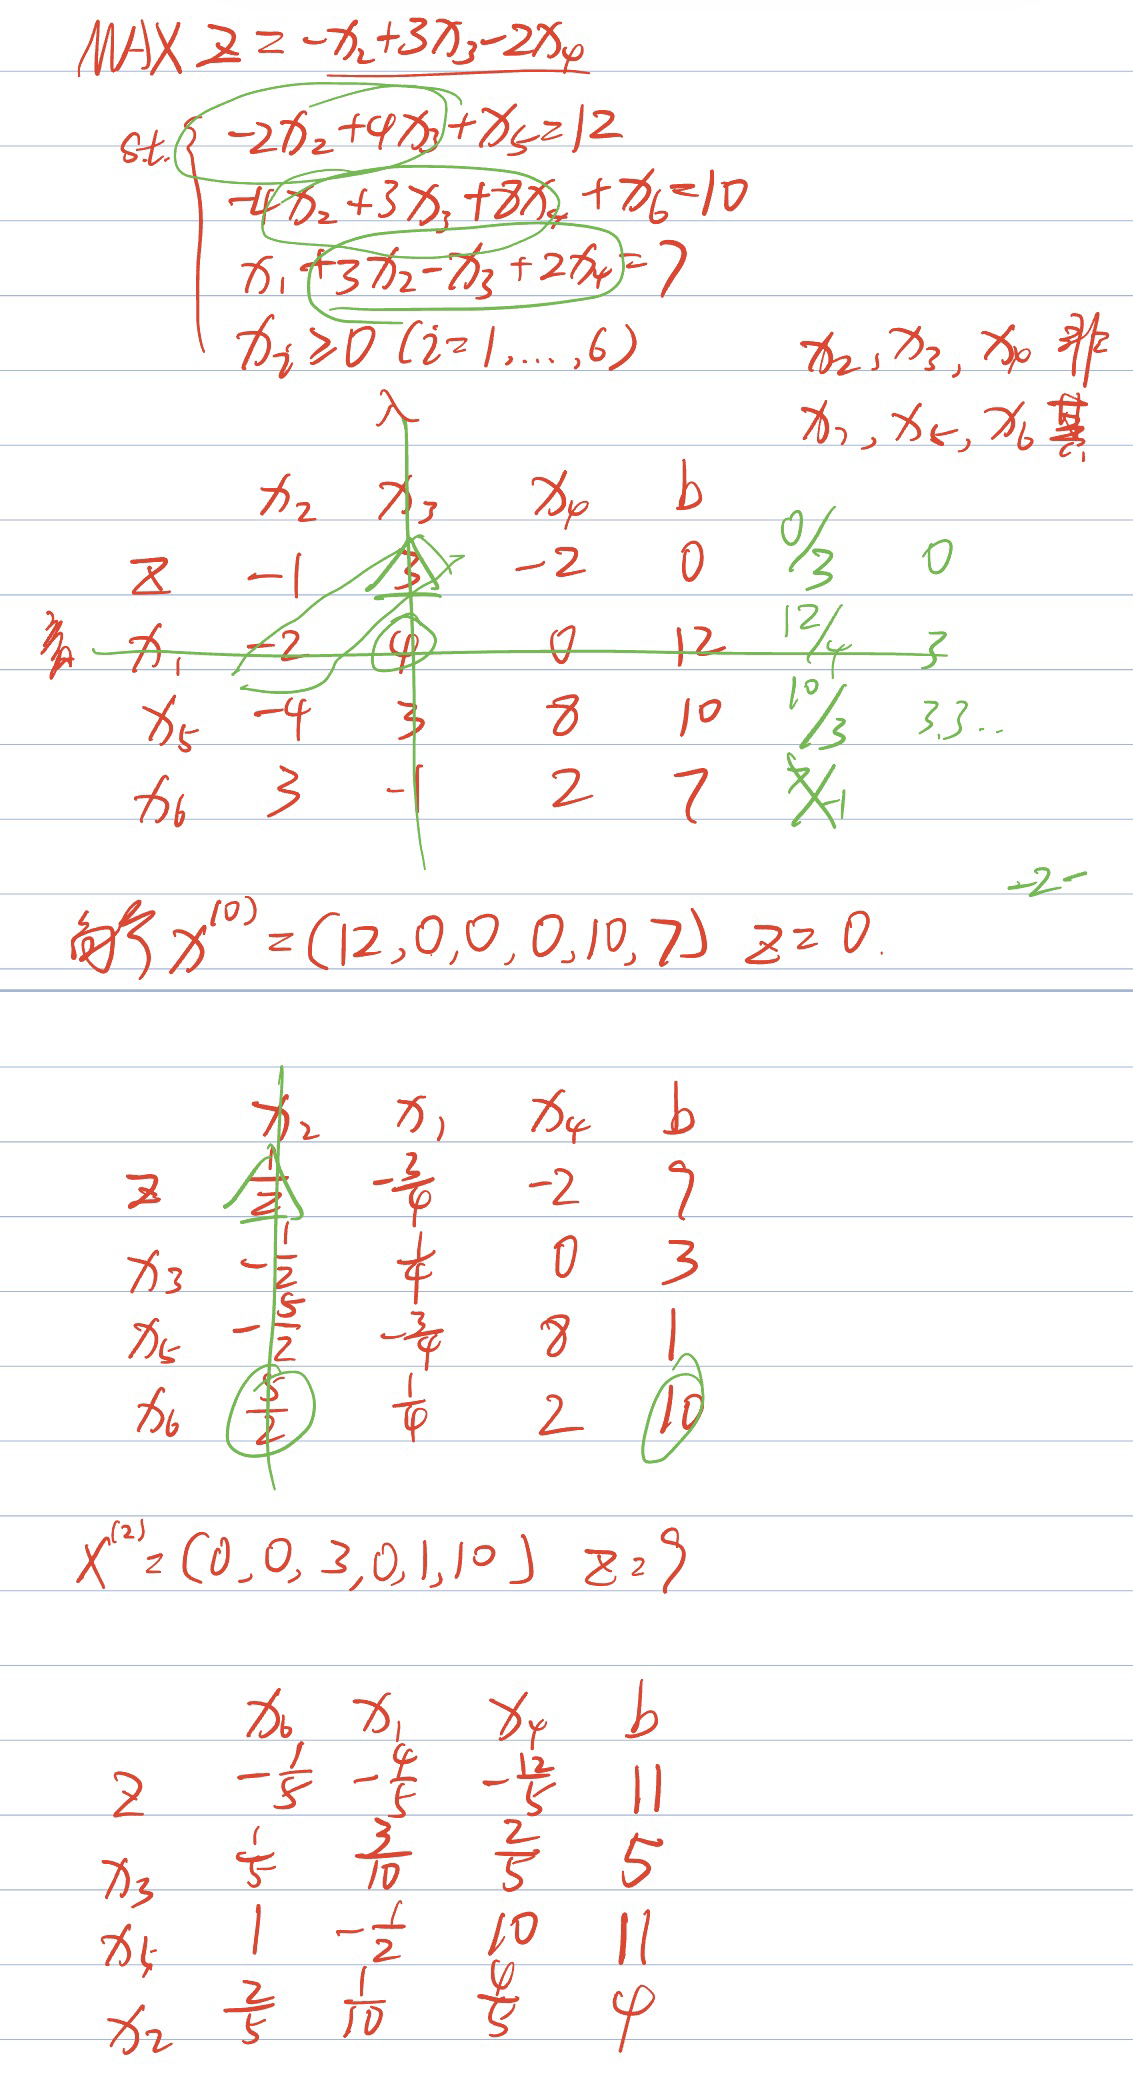 MAX Z = -x₂+3x₃-2x₄
st. { -2x₂+4x₃+x₅=12
-4x₂+3x₃+8x₄+x₆=10
x₁+3x₂-x₃+2x₄=7
xᵢ≥0 (i=1,...,6)
x₂,x₃,x₄ 非
x₁,x₅,x₆ 基
λ
x₂ x₃ x₄ b
Z -1 3 -2 0 0/3 0
x₁ -2 4 0 12 12/4 3
x₅ -4 3 8 10 10/3 3,3..
x₆ 3 -1 2 7 7/-1
-2-
x⁽⁰⁾=(12,0,0,0,10,7) z=0.
x₂ x₁ x₄ b
Z 1/2 -3/4 -2 9
x₃ -1/2 1/4 0 3
x₅ -5/2 -3/4 8 1
x₆ 5/2 1/4 2 10
X⁽²⁾=(0,0,3,0,1,10) z=9
x₆ x₁ x₄ b
Z -1/5 -4/5 -12/5 11
x₃ 1/5 3/10 2/5 5
x₅ 1 -1/2 10 11
x₂ 2/5 1/10 4/5 4